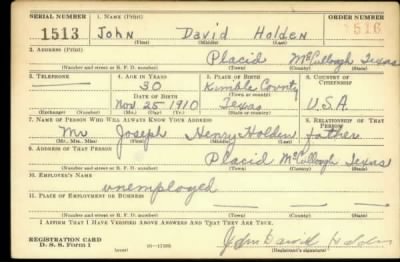 SERIAL NUMBER 1. NAME (Print) ORDER NUMBER
1513 John David Holden 516
(First) (Middle) (Last)
2. ADDRESS (Print)
Placid McCullough Texas
(Number and street or R. F. D. number) (Town) (County) (State)
3. TELEPHONE 4. AGE IN YEARS 5. PLACE OF BIRTH 6. COUNTRY OF CITIZENSHIP
30 Kimble County
DATE OF BIRTH (Town or county)
Nov. 25 1910 Texas U.S.A
(Exchange) (Number) (Mo.) (Day) (Yr.) (State or country)
7. NAME OF PERSON WHO WILL ALWAYS KNOW YOUR ADDRESS 8. RELATIONSHIP OF THAT PERSON
Mr Joseph Henry Holden father
(Mr., Mrs., Miss) (First) (Middle) (Last)
9. ADDRESS OF THAT PERSON
Placid McCullough Texas
(Number and street or R. F. D. number) (Town) (County) (State)
10. EMPLOYER'S NAME
unemployed
11. PLACE OF EMPLOYMENT OR BUSINESS
(Number and street or R. F. D. number) (Town) (County) (State)
I AFFIRM THAT I HAVE VERIFIED ABOVE ANSWERS AND THAT THEY ARE TRUE.
REGISTRATION CARD
D. S. S. Form 1 (over) John David Holden
(Registrant's signature)